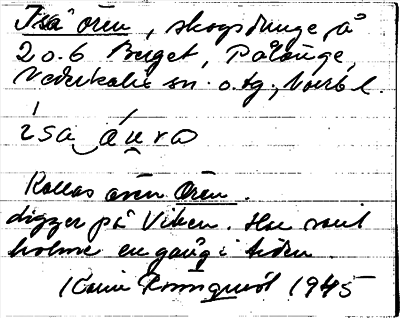 Isä ören, skogsdunge på
2 o. 6 Berget, Pålänge,
Nederkalix sn. o. tg, Norrb l.
ísa á u ra
Kallas även Ören.
Ligger på Viken. Har varit
holme en gång i tiden.
Karin Rönnquist 1945